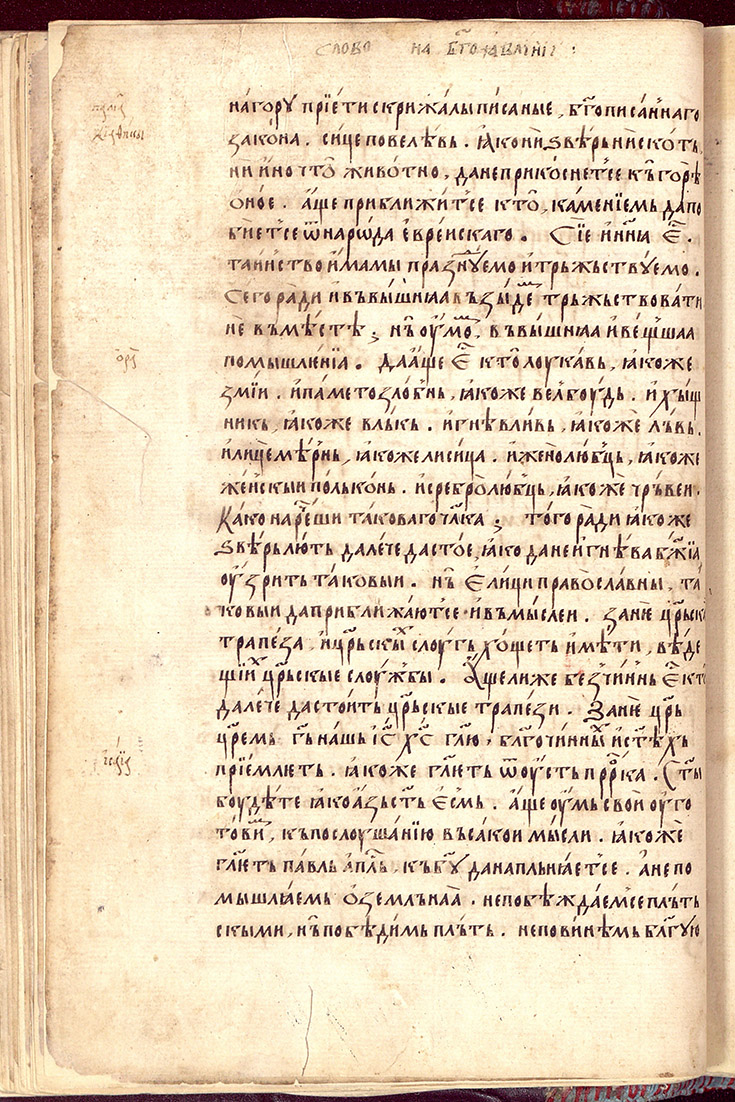 слово на бг҃оявлѥнїе :
на гору прїети скрижалы писаные , бг҃описан̾наго
закона . сице повелѣвь . ꙗко ни ѕвѣрь ни скоть
ни ино что животно , да не прикоснет̾се къ горѣ
оное . аще приближит̾се кто , каменїемь да по
бїет̾се ѿ народа еврейскаго . Сїе ннꙗ ес҃ .
таинство имамы празⷣнуемо и трьжьствуемо .
Сего ради и въ вышнꙗа възыдѣмь трьжьствовати
не въ мѣстѣ ; нь оумомь , въ вышнꙗа и вещшаа
помышленїа . Да аще ес҃ кто лоукавь , ꙗкоже
змїи . и паметозлобнь , ꙗкоже вел̾боудь . и хыщ
никь , ꙗкоже влькь . и гнѣвливь , ꙗкоже львь .
и лицемѣрнь , ꙗкоже лисица . и женолюбць , ꙗкоже
женскыи польконь . и сребролюбць , ꙗкоже чрьвеи .
Како наре҃ши таковаго чл҃ка ; того ради ꙗкоже
ѕвѣрь лють далече да стое , ꙗко да не и гнѣва бж҃їа
оузрить таковыи . нь елици православны , та
ковыи да приближают̾се и въ мыслеи . зане цр҃ьск
трапеза , и цр҃ьскыхь слоугь хощеть имѣти , вѣде
щїихь цр҃ьскые слоужбы . Аще ли же безчиннь ес҃ кт
далече да стоить цр҃ьскые трапези . Зане цр҃ь
цр҃емь гь҃ нашь іс҃ хс҃ гл҃ю , блг҃очинныхь и стѣхь
прїемлеть . ꙗкоже гл҃еть ѿ оусть прⷪр҃ка . Ст҃ы
боудѣте ꙗко азь ст҃ь есмь . аще оумь свои оуго
товимь , къ послоушанїю въсакои мысли . ꙗкоже
гл҃еть павль апⷭ҃ль , къ бг҃у да напльнꙗет̾се . а не по
мышлꙗемь о земльнаа . не побѣждаем̾се пльть
скыми , нь побѣдимь пльть . не повинѣмь блг҃ую